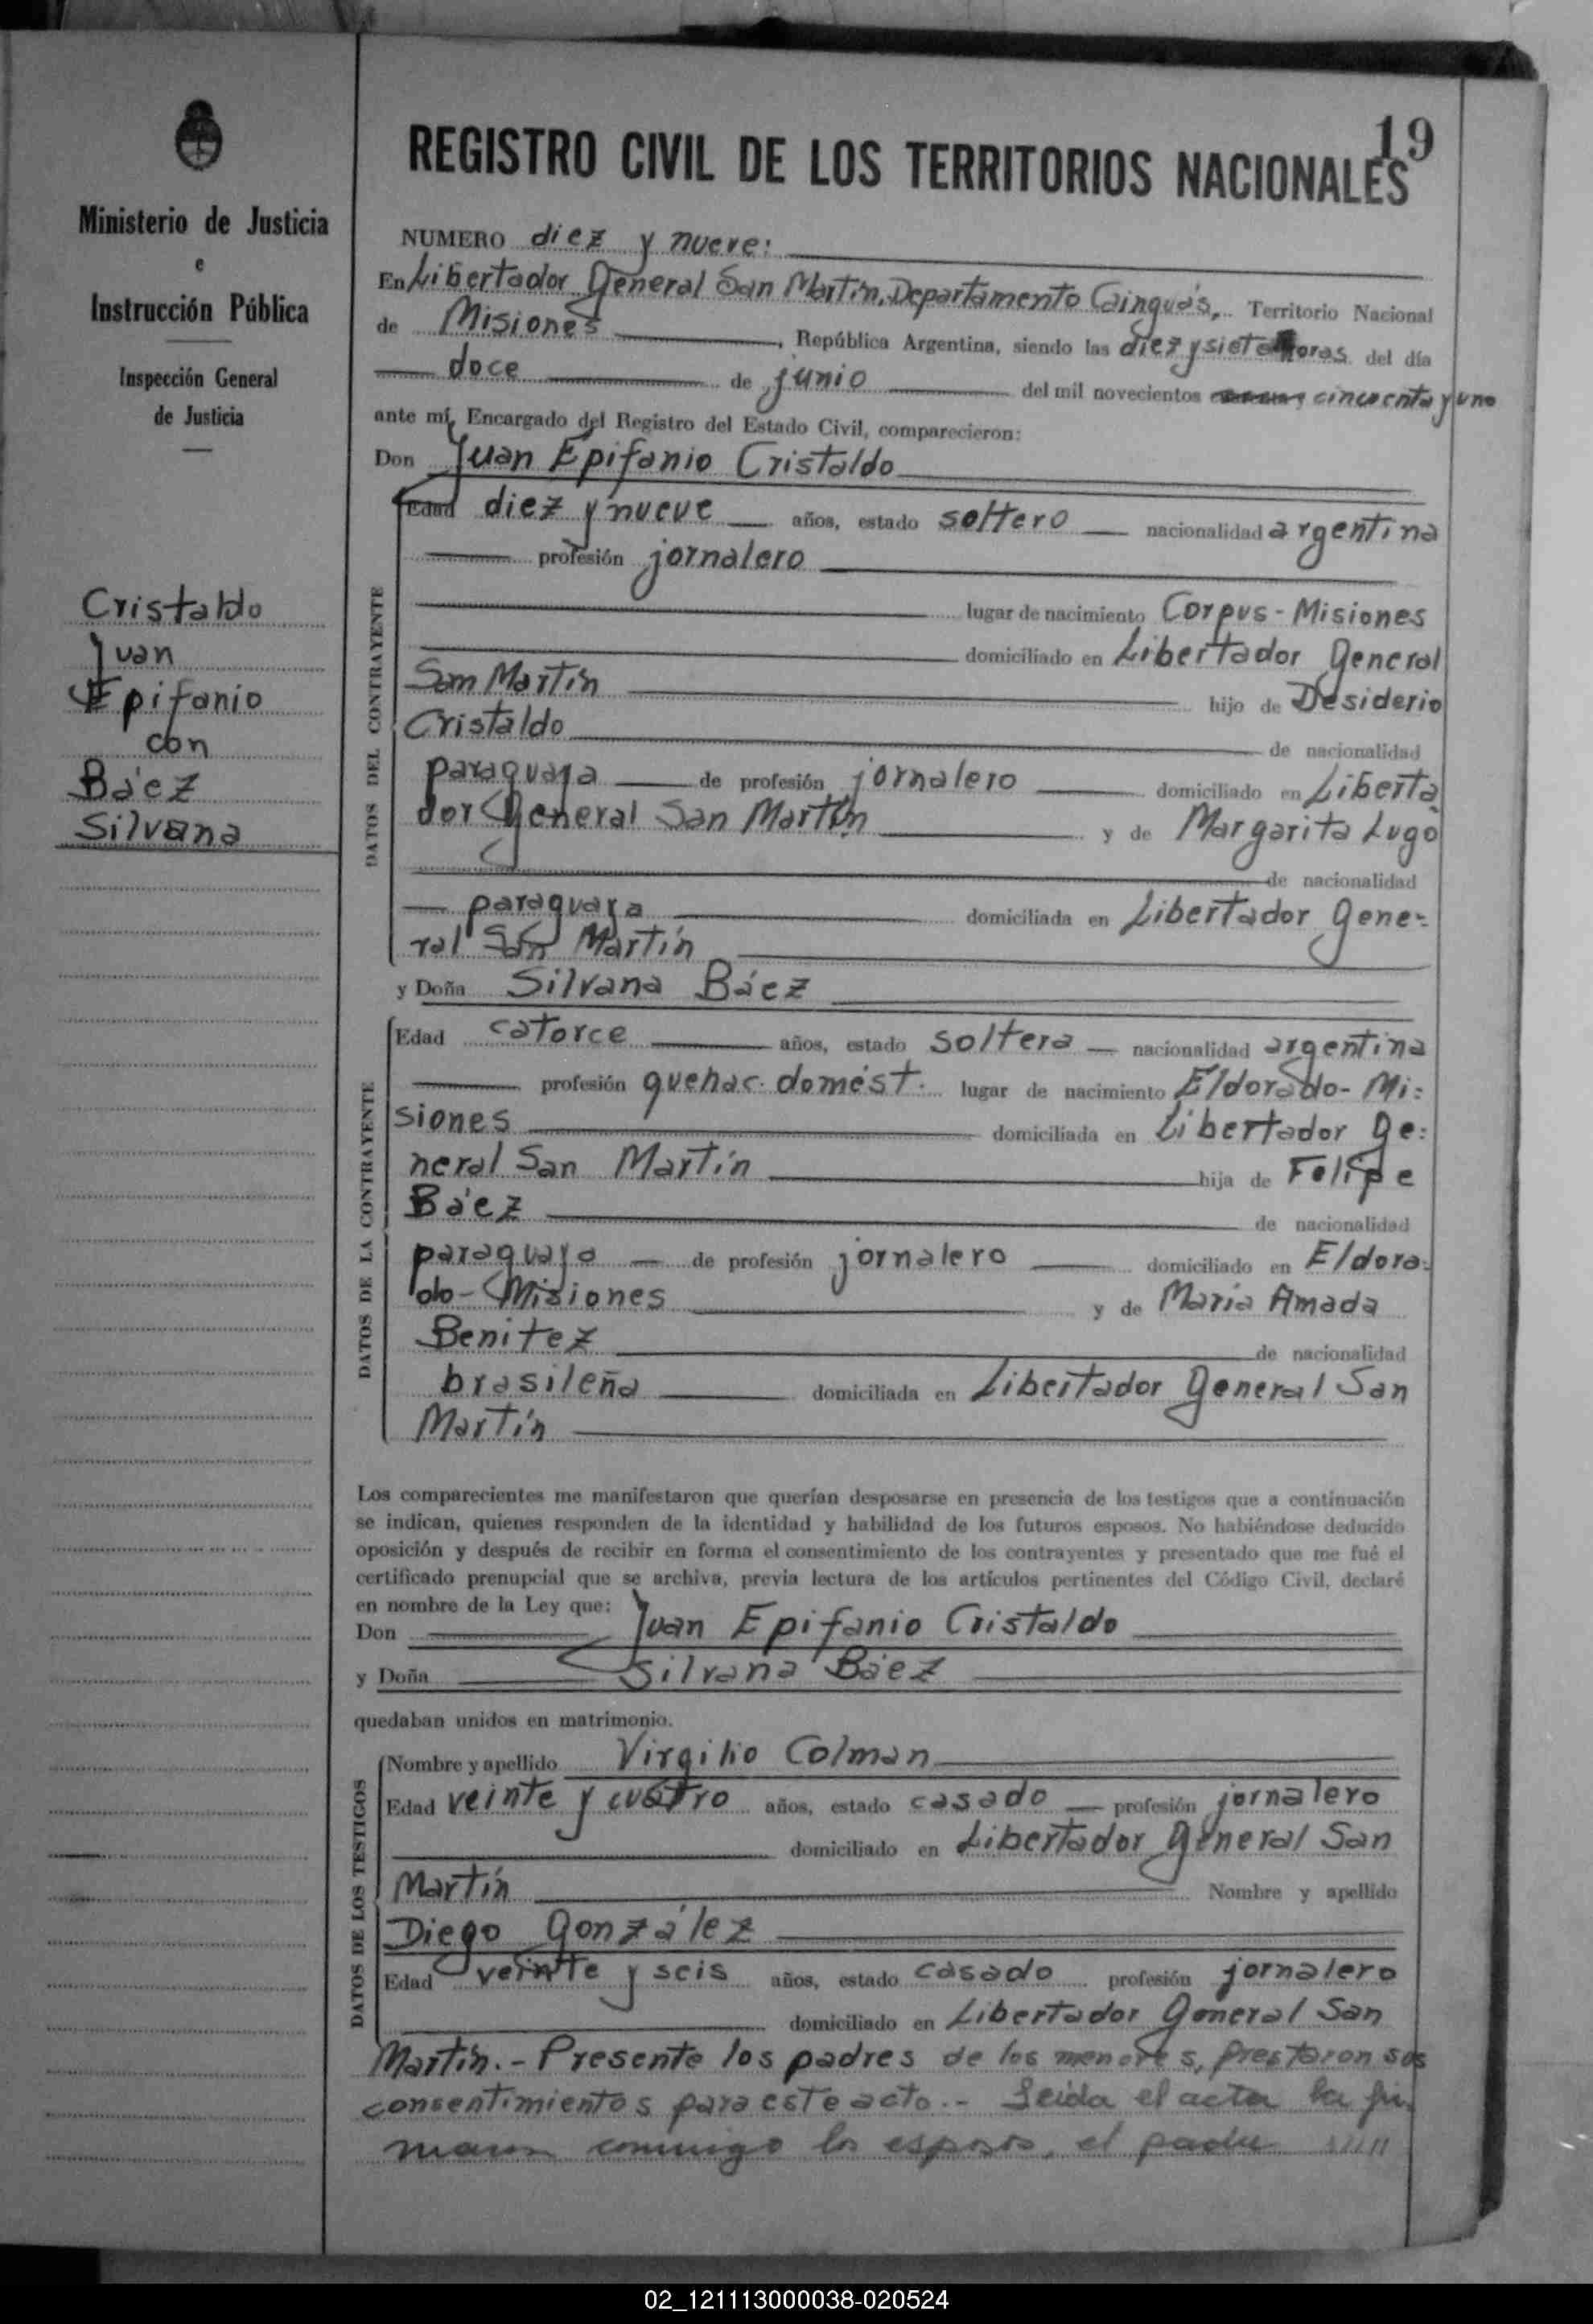 19
REGISTRO CIVIL DE LOS TERRITORIOS NACIONALES
Ministerio de Justicia
e
Instrucción Pública
Inspección General
de Justicia
Cristaldo
Juan
Epifanio
con
Báez
Silvana
NUMERO diez y nueve:
En Libertador General San Martín, Departamento Cainguás, Territorio Nacional
de Misiones, República Argentina, siendo las diez y siete horas del día
doce de junio del mil novecientos cincuenta y uno
ante mí, Encargado del Registro del Estado Civil, comparecieron:
Don Juan Epifanio Cristaldo
DATOS DEL CONTRAYENTE
Edad diez y nueve años, estado soltero nacionalidad argentina
profesión jornalero
lugar de nacimiento Corpus - Misiones
domiciliado en Libertador General
San Martín hijo de Desiderio
Cristaldo de nacionalidad
paraguaya de profesión jornalero domiciliado en Liberta
dor General San Martín y de Margarita Lugo
de nacionalidad
paraguaya domiciliada en Libertador Gene-
ral San Martín
y Doña Silvana Báez
DATOS DE LA CONTRAYENTE
Edad catorce años, estado soltera nacionalidad argentina
profesión quehac. domést. lugar de nacimiento Eldorado - Mi-
siones domiciliada en Libertador Ge-
neral San Martín hija de Felipe
Báez de nacionalidad
paraguayo de profesión jornalero domiciliado en Eldora-
do - Misiones y de María Amada
Benitez de nacionalidad
brasileña domiciliada en Libertador General San
Martín
Los comparecientes me manifestaron que querían desposarse en presencia de los testigos que a continuación
se indican, quienes responden de la identidad y habilidad de los futuros esposos. No habiéndose deducido
oposición y después de recibir en forma el consentimiento de los contrayentes y presentado que me fué el
certificado prenupcial que se archiva, previa lectura de los artículos pertinentes del Código Civil, declaré
en nombre de la Ley que:
Don Juan Epifanio Cristaldo
y Doña Silvana Báez
quedaban unidos en matrimonio.
DATOS DE LOS TESTIGOS
Nombre y apellido Virgilio Colman
Edad veinte y cuatro años, estado casado profesión jornalero
domiciliado en Libertador General San
Martín Nombre y apellido
Diego González
Edad veinte y seis años, estado casado profesión jornalero
domiciliado en Libertador General San
Martín. - Presente los padres de los menores, prestaron sus
consentimientos para este acto. - Leída el acta la fir-
maron conmigo los esposos, el padre
02_121113000038-020524